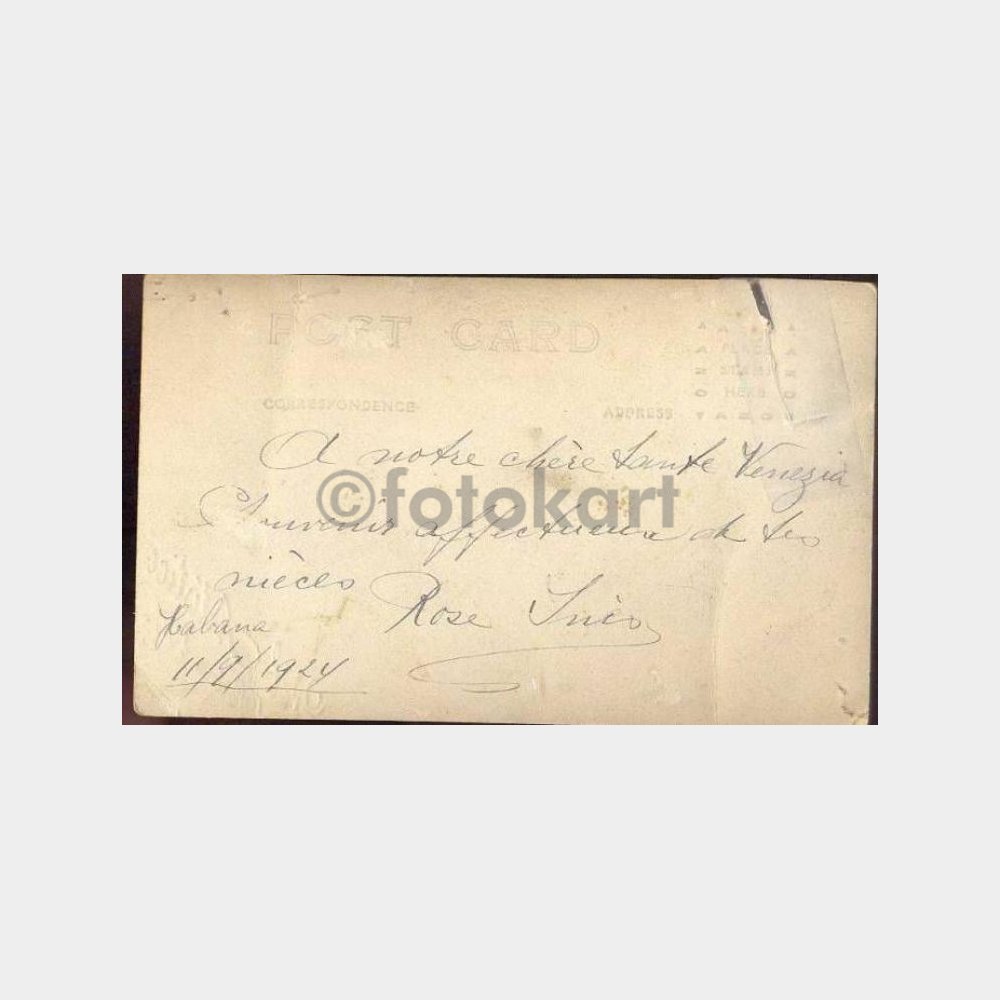 POST CARD
CORRESPONDENCE
ADDRESS
STAMP
HERE
A notre chère tante Venezia
©fotokart
Souvenir affectueux de tes
nièces Rose Inès
Habana
11/9/1924